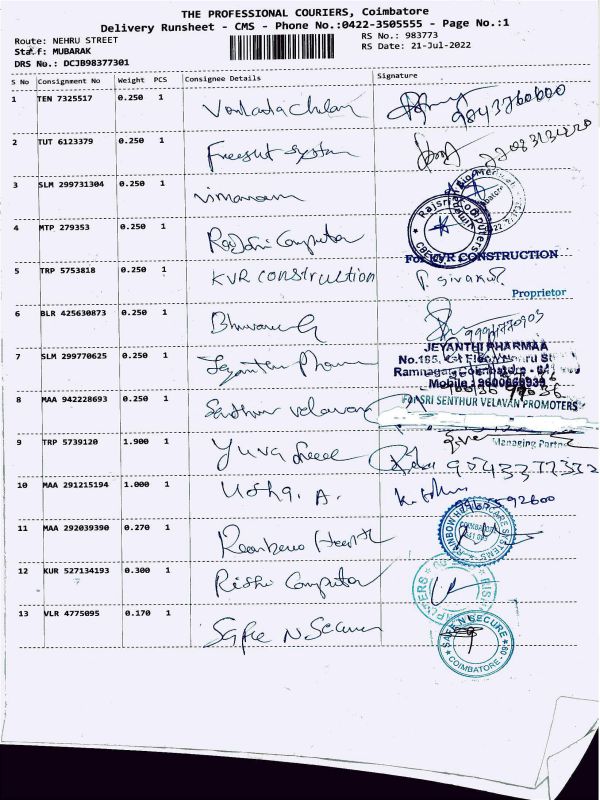 THE PROFESSIONAL COURIERS, Coimbatore
Delivery Runsheet - CMS - Phone No.:0422-3505555 - Page No.:1
Route: NEHRU STREET
RS No.: 983773
Staff: MUBARAK
RS Date: 21-Jul-2022
DRS No.: DCJB98377301
S No Consignment No Weight PCS Consignee Details Signature
1 TEN 7325517 0.250 1
9843760600
2 TUT 6123379 0.250 1 System
3 SLM 299731304 0.250 1
4 MTP 279353 0.250 1 Computer
Rajsri Computers
For KVR CONSTRUCTION
5 TRP 5753818 0.250 1 KVR construction P. Sivakul
Proprietor
6 BLR 425630873 0.250 1
JEYANTHI PHARMAA
7 SLM 299770625 0.250 1 Jeyanthi Pharma
Ramnagar, Coimbatore
Mobile :
8 MAA 942228693 0.250 1 Senthur Velavan
For SRI SENTHUR VELAVAN PROMOTERS
Managing Partner
9 TRP 5739120 1.900 1 Yuva
10 MAA 291215194 1.000 1 Usha. A.
92600
11 MAA 292039390 0.270 1
RAINBOW HEALTH CARE SYSTEMS
12 KUR 527134193 0.300 1 Rishi Computer
13 VLR 4775095 0.170 1 Safe N Secure
SAFE N SECURE
COIMBATORE